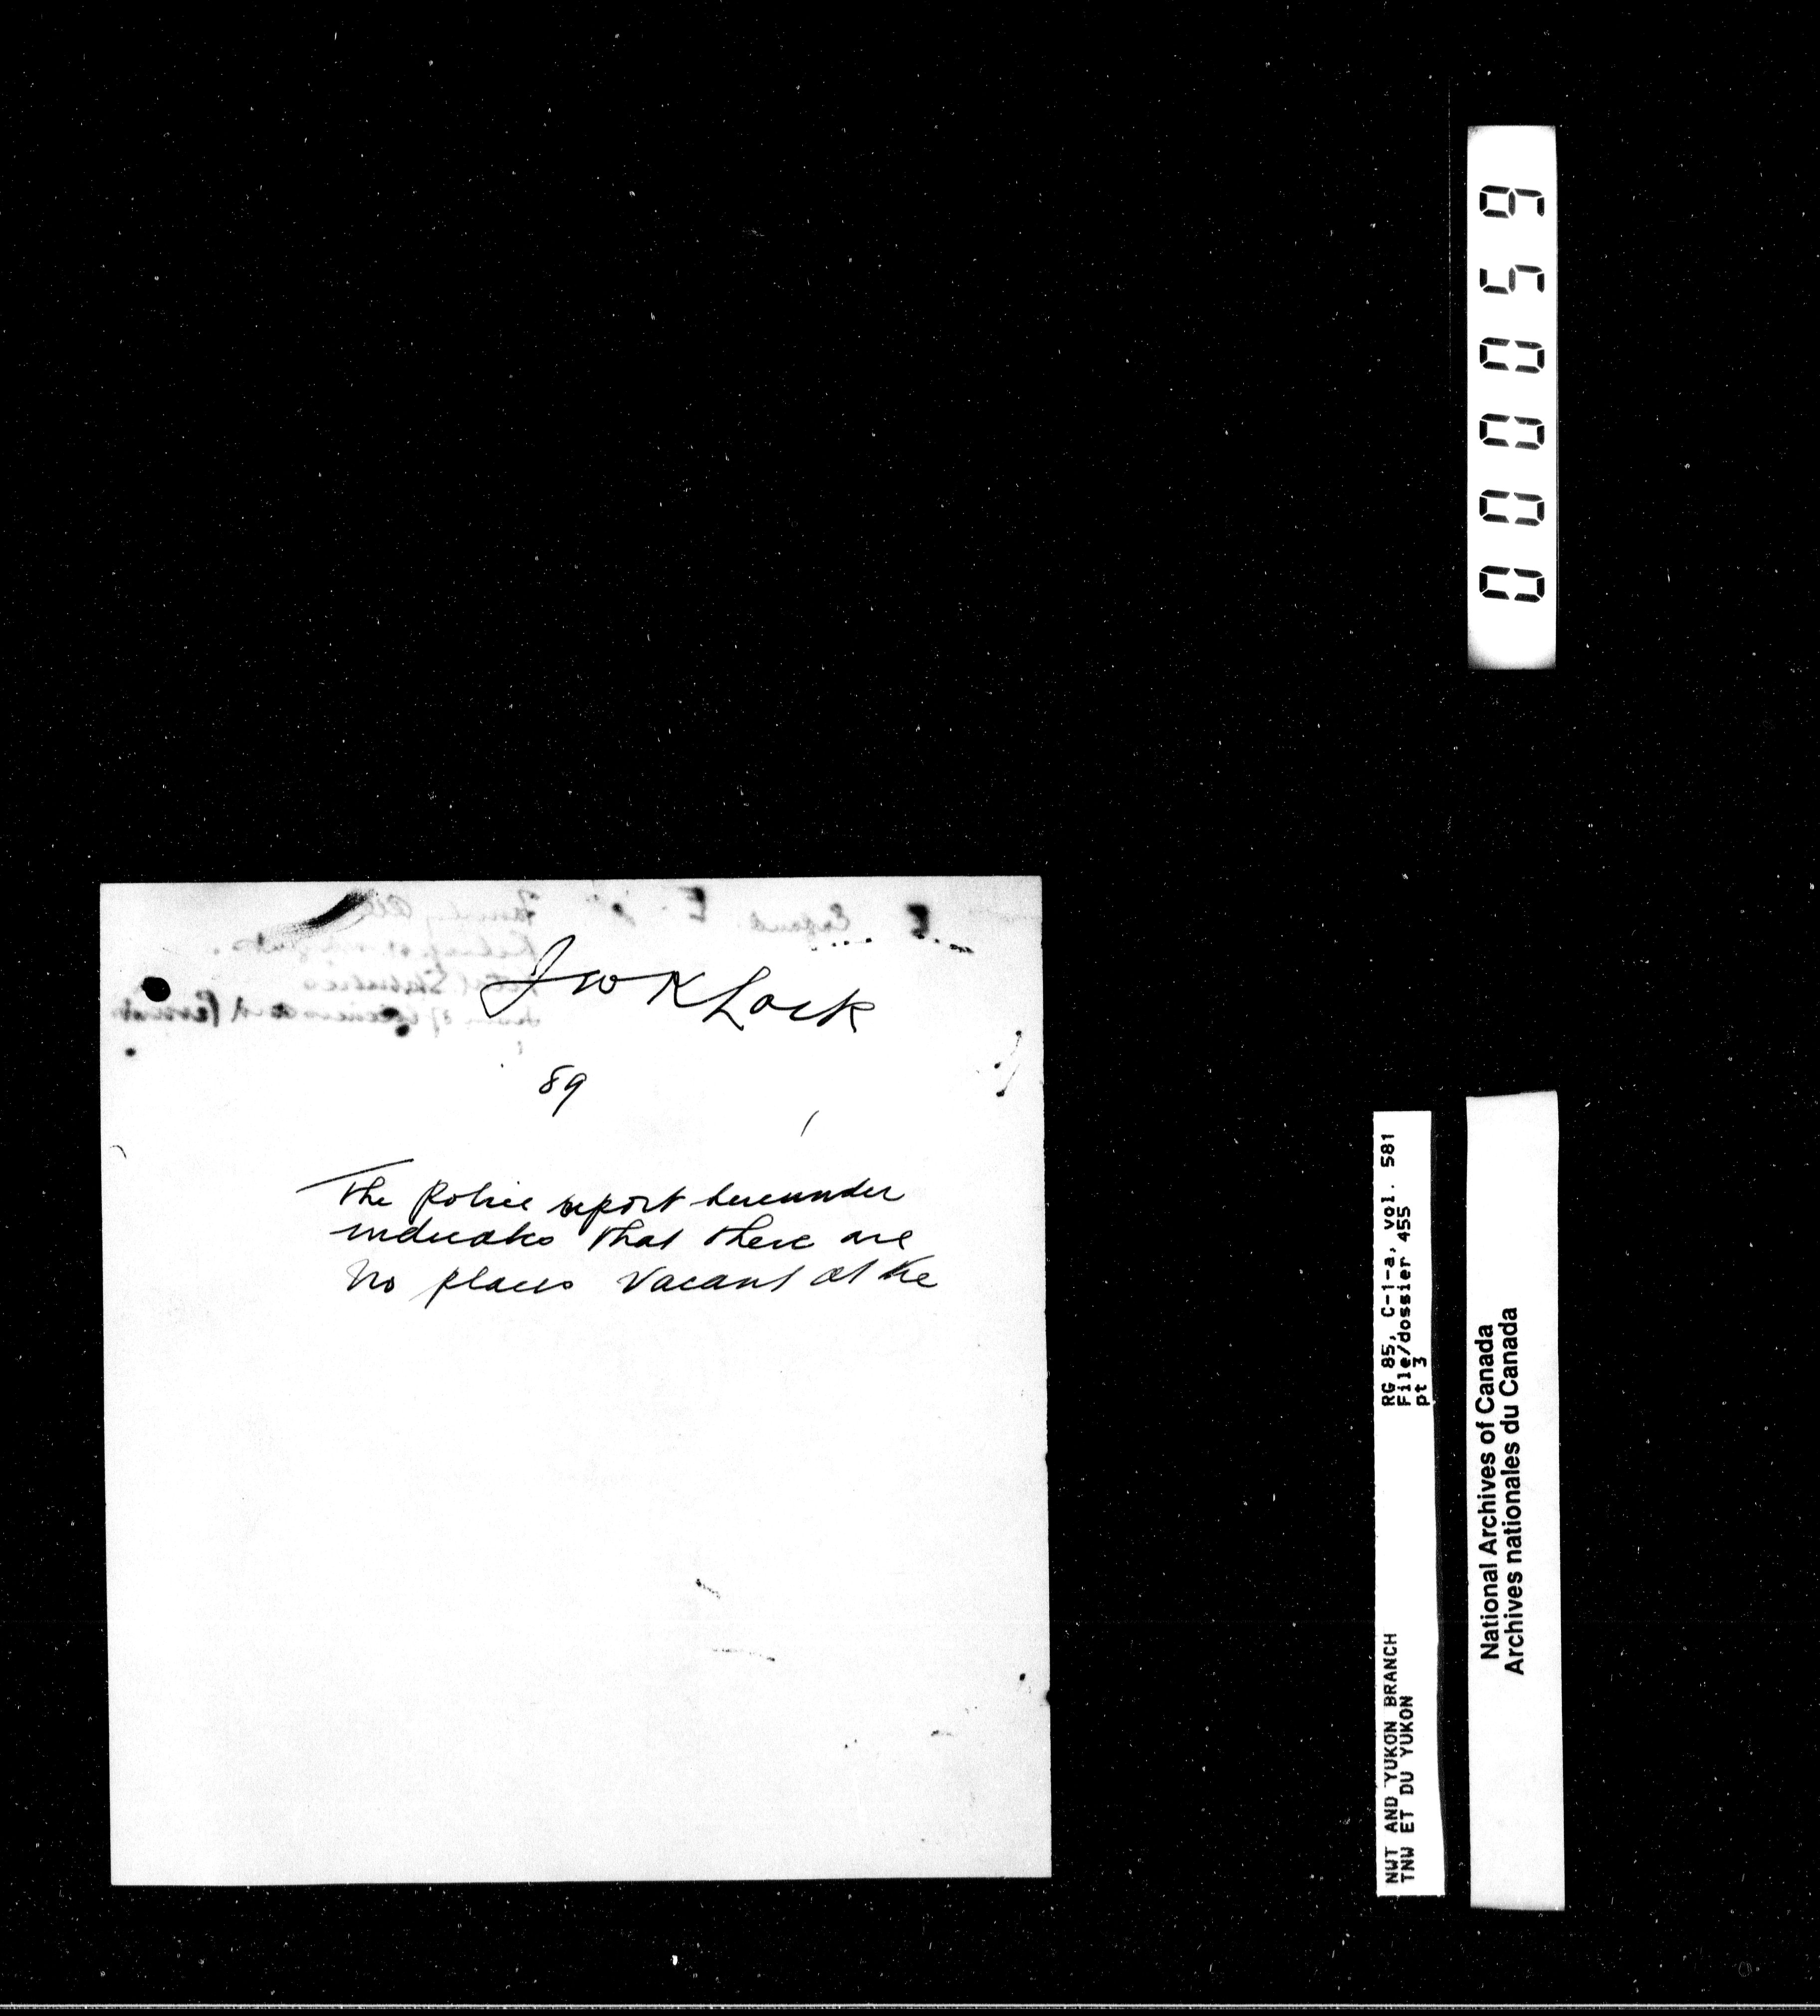 J W K Lock
89
The Police report hereunder
indicates that there are
No places vacant at the
000059
RG 85, C-1-a, vol. 581
File/dossier 455
pt 3
NWT AND YUKON BRANCH
TNW ET DU YUKON
National Archives of Canada
Archives nationales du Canada